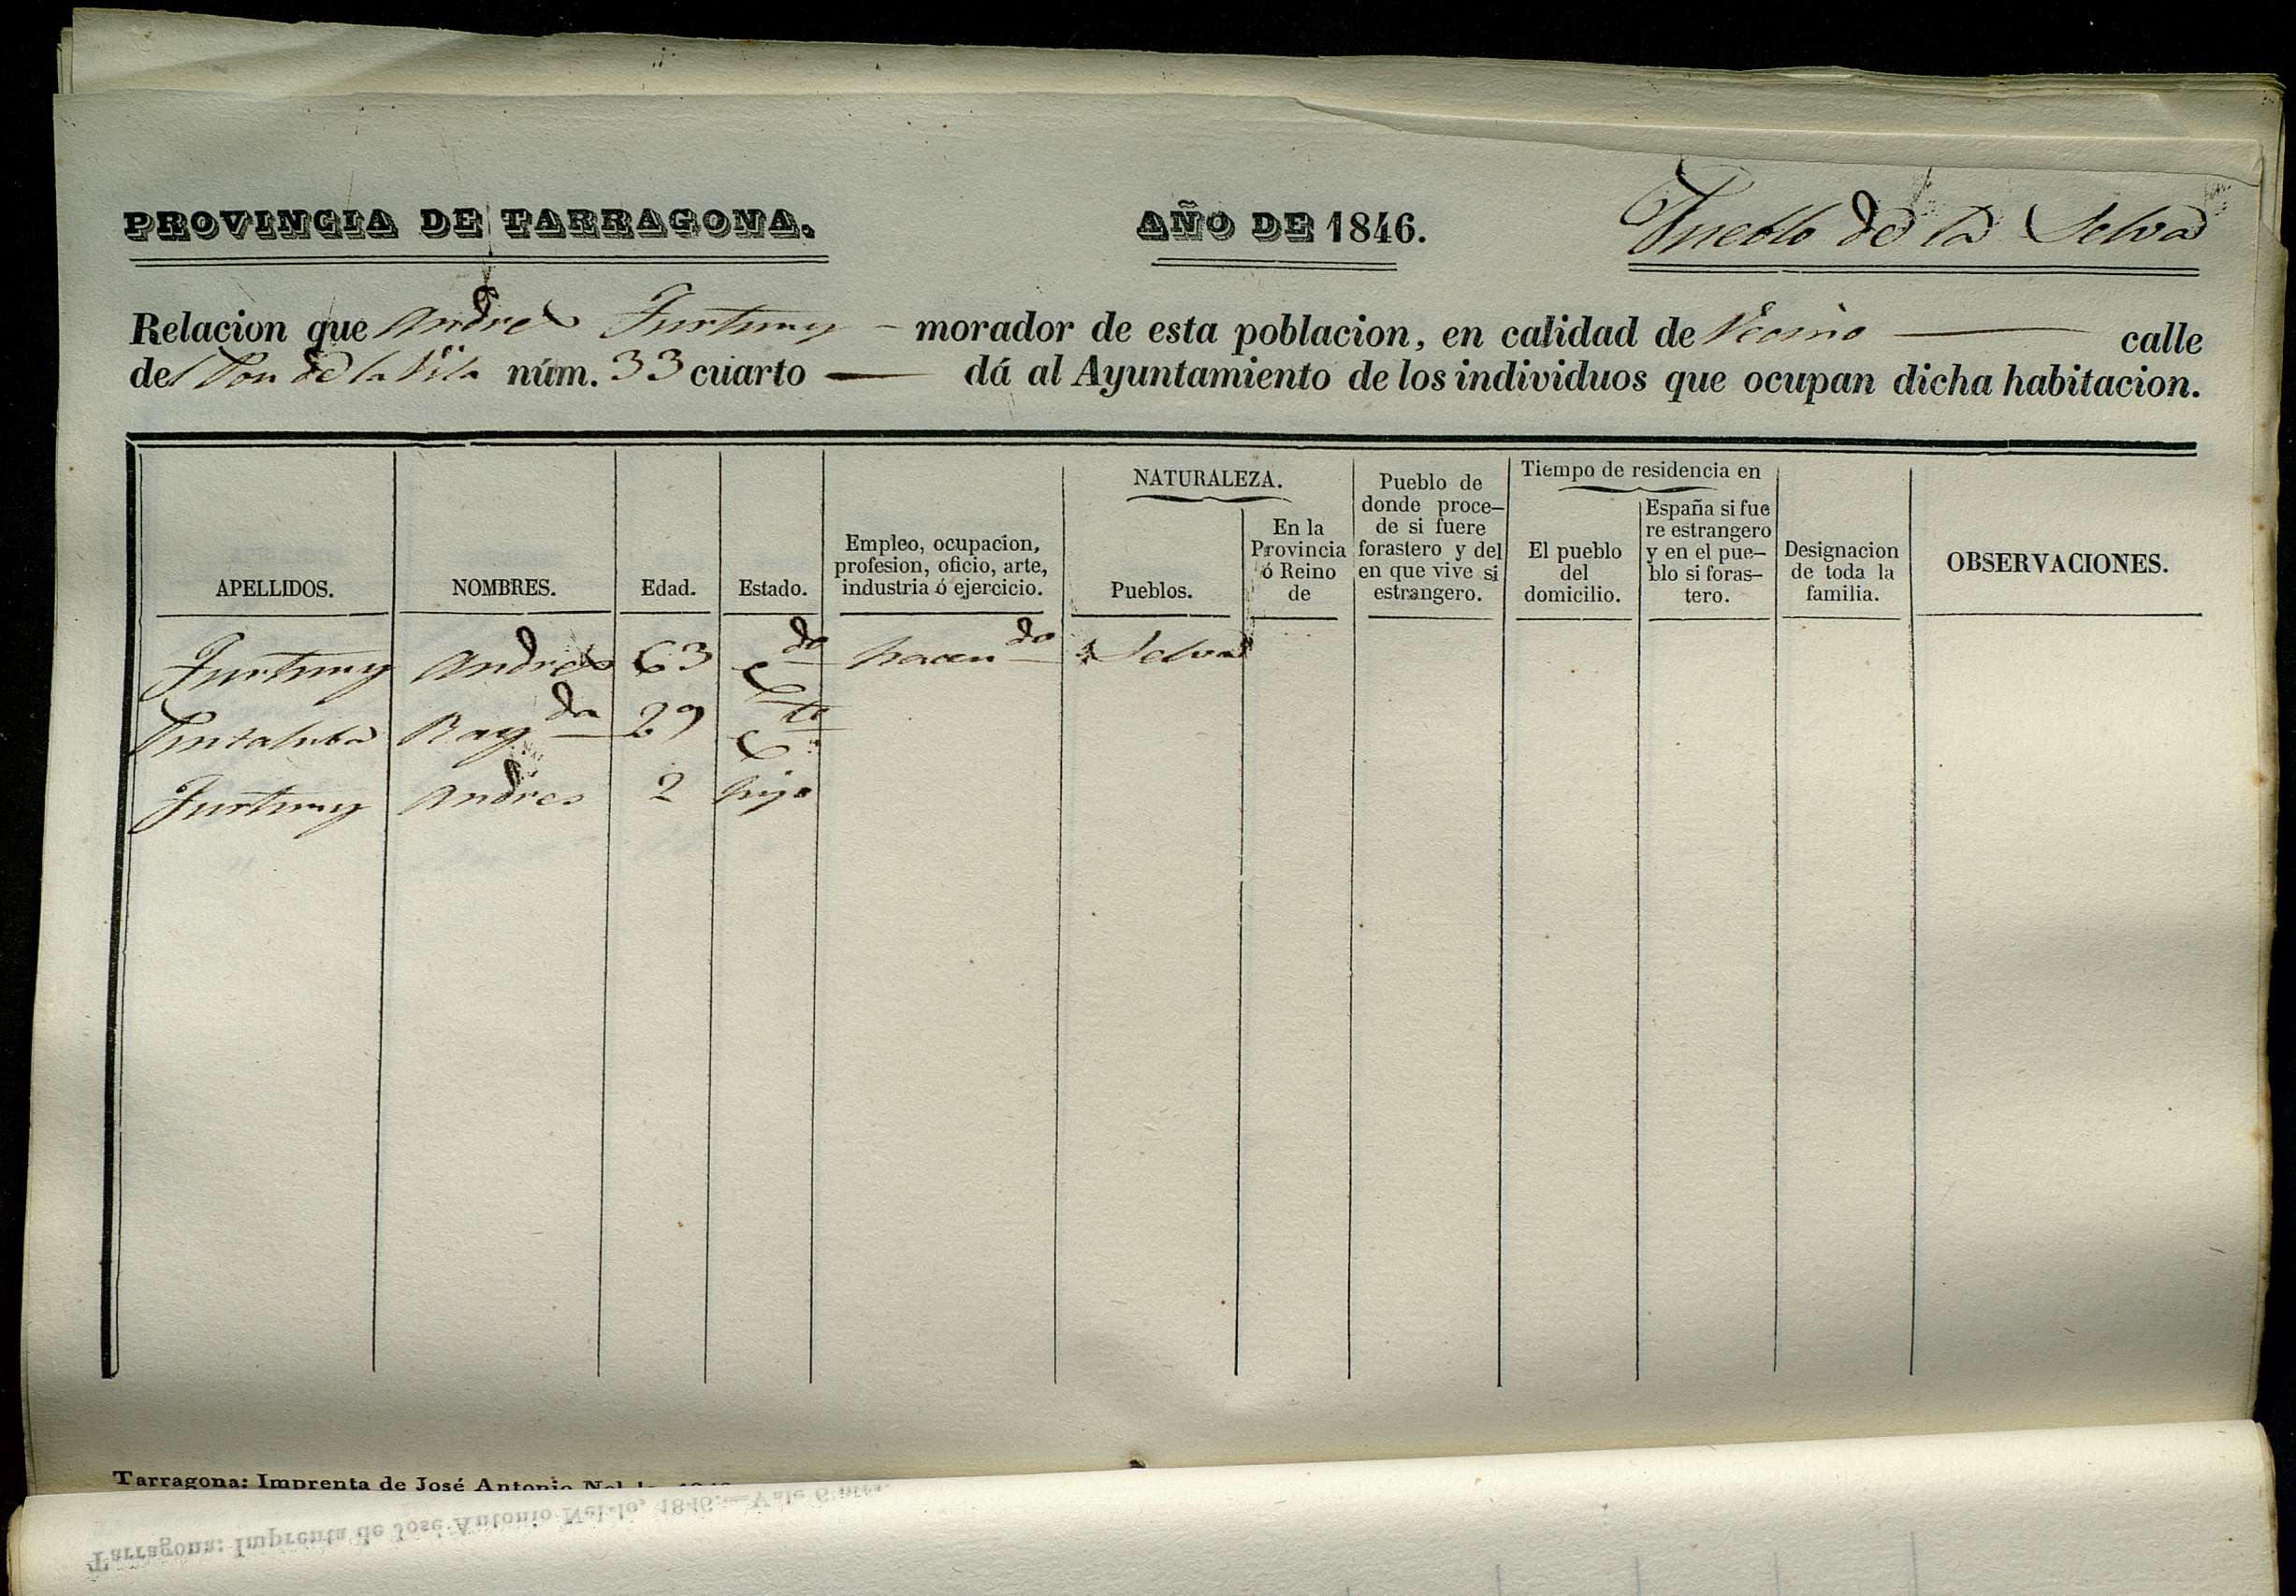 PROVINCIA DE TARRAGONA.
AÑO DE 1846.
Pueblo de la Selva
Relacion que Andres Furtuny – morador de esta poblacion, en calidad de Vecino — calle
del Pou de la Vila núm. 33 cuarto — dá al Ayuntamiento de los individuos que ocupan dicha habitacion.
APELLIDOS.
NOMBRES.
Edad.
Estado.
Empleo, ocupacion,
profesion, oficio, arte,
industria ó ejercicio.
NATURALEZA.
Pueblos.
En la
Provincia
ó Reino
de
Pueblo de
donde proce–
de si fuere
forastero y del
en que vive si
estrangero.
Tiempo de residencia en
El pueblo
del
domicilio.
España si fue
re estrangero
y en el pue–
blo si foras–
tero.
Designacion
de toda la
familia.
OBSERVACIONES.
Furtuny Andres 63 Cdo hacendo Selva
Puntaluba Rayda 29 Cta
Furtuny Andres 2 hijo
Tarragona: Imprenta de José Antonio Nel·lo, 1846
Tarragona: Imprenta de José Antonio Nel·lo, 1846.—Vale 6 mrs.